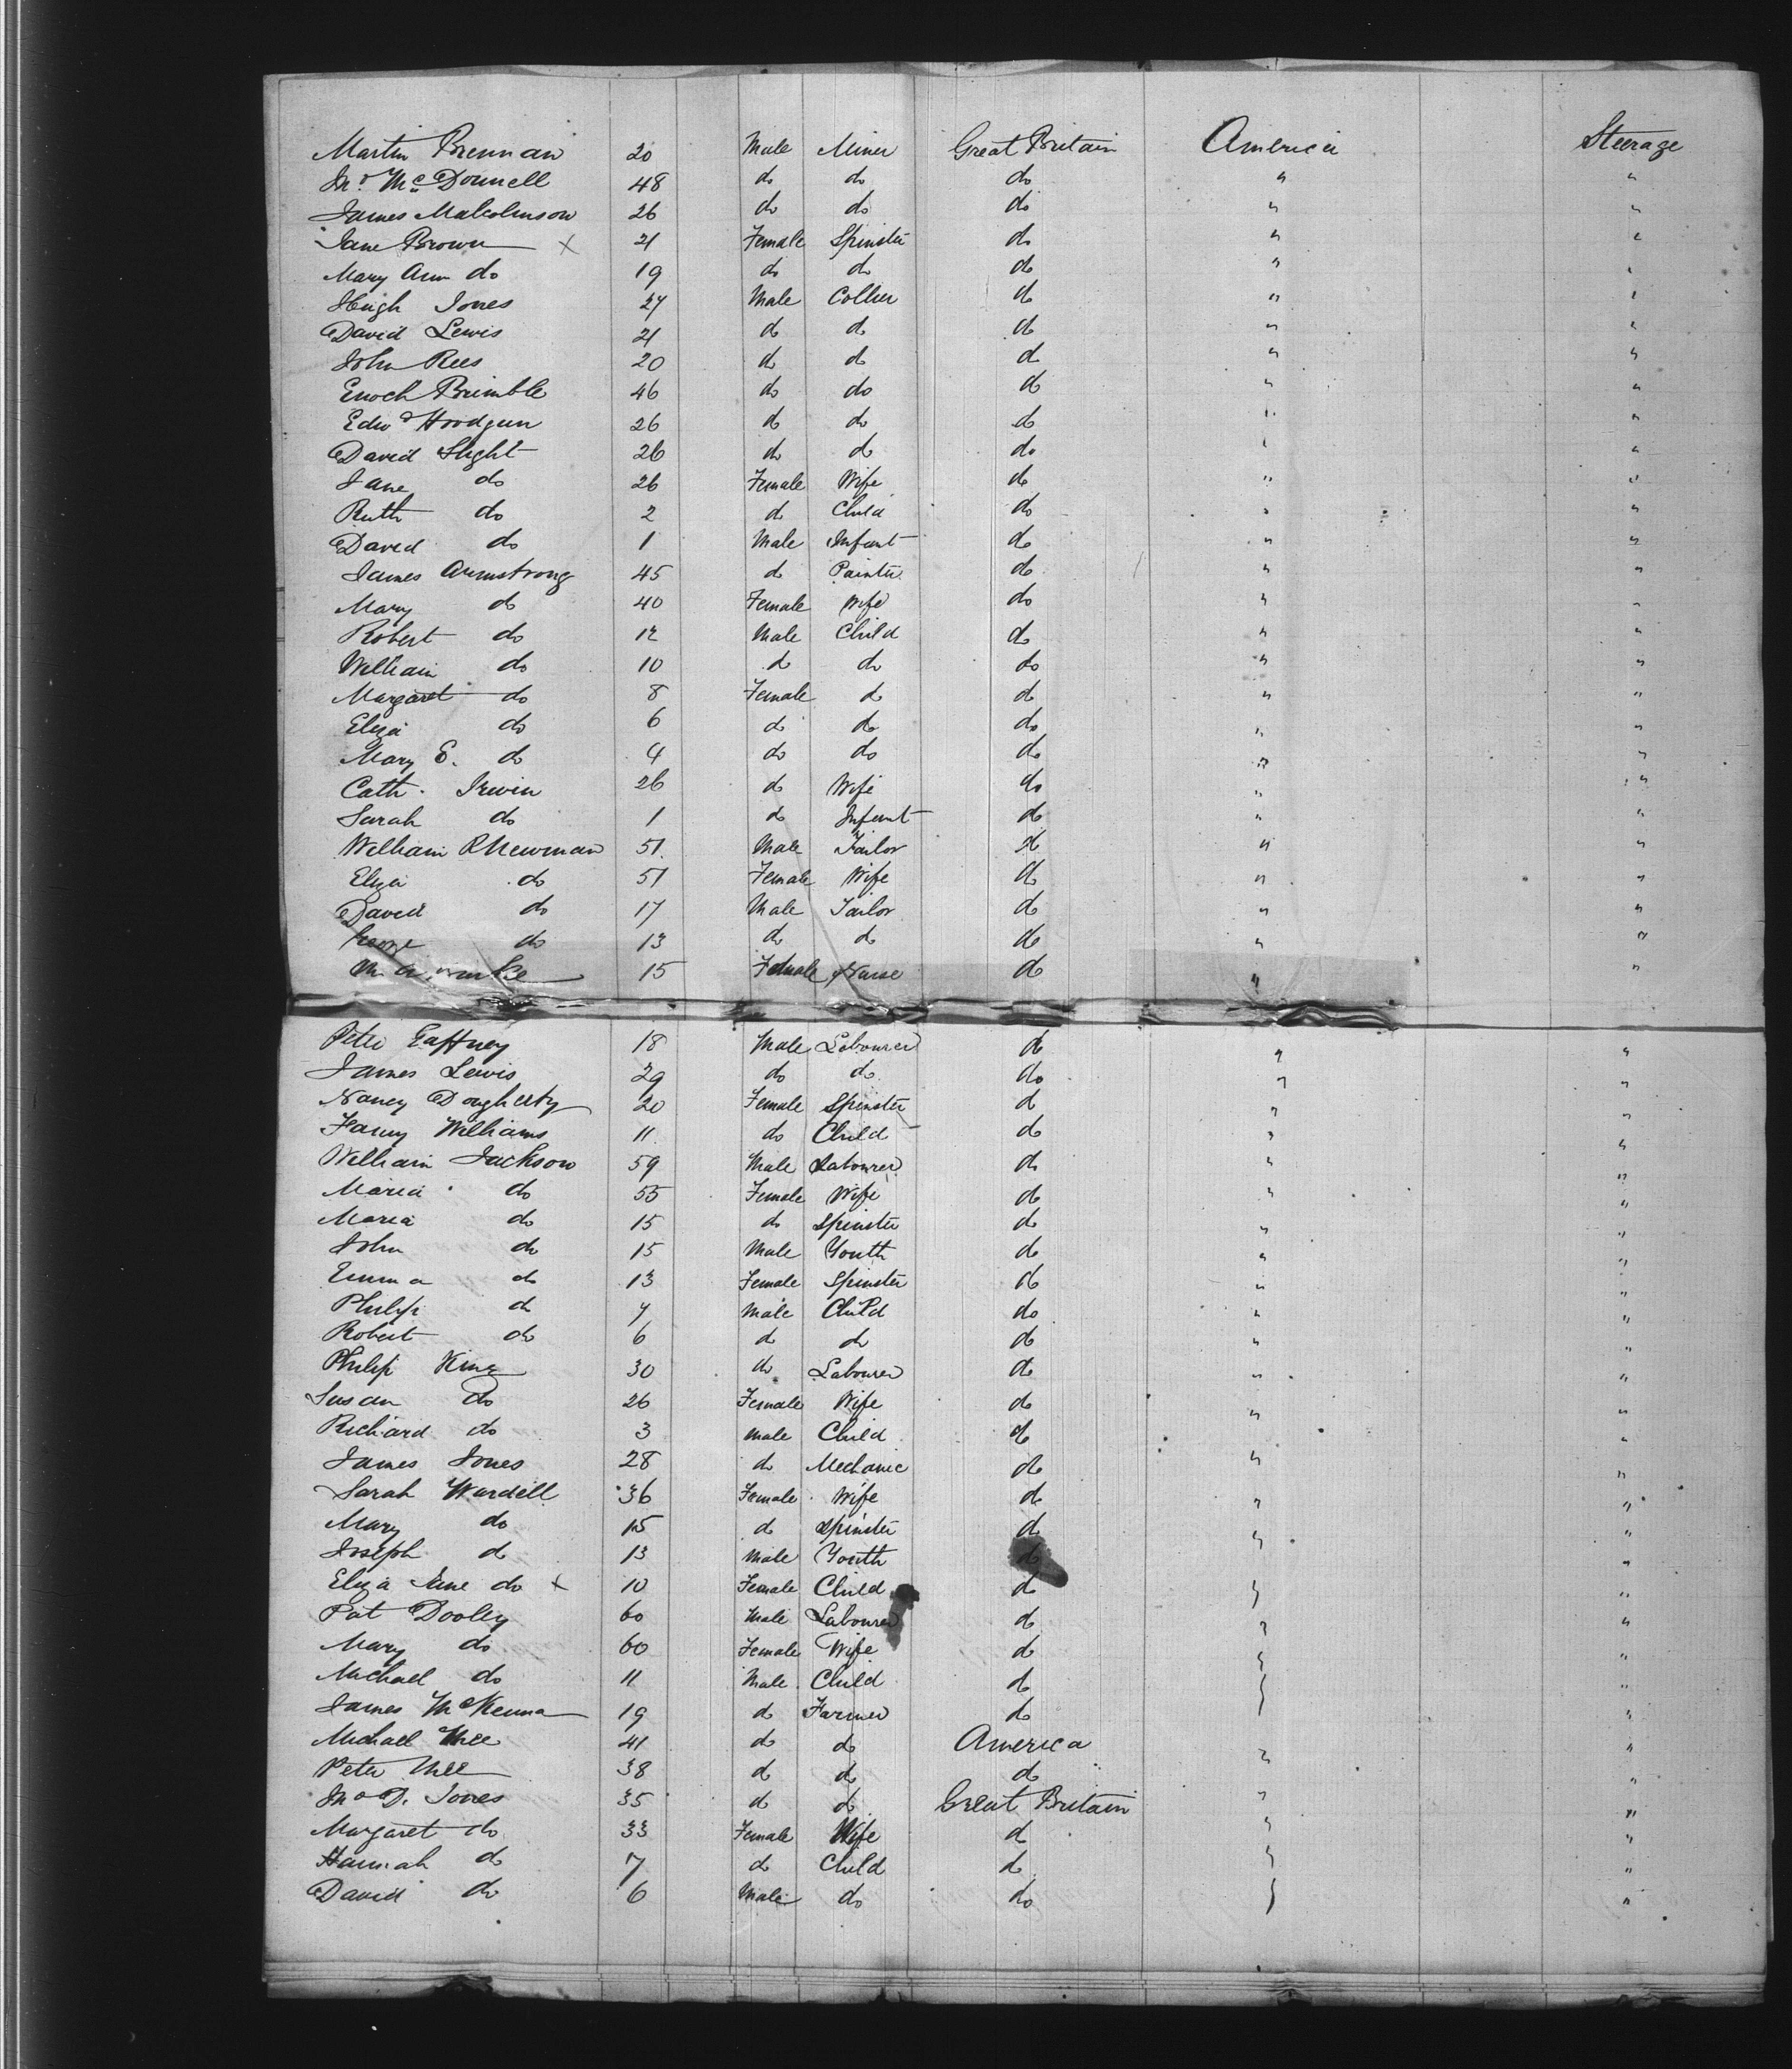 Martin Brennan 20 Male Miner Great Britain America Steerage
Jno McDonnell 48 do do do " "
James Malcolmson 26 do do do " "
Jane Brown x 21 Female Spinster do " "
Mary Ann do 19 do do do " "
Hugh Jones 27 Male Collier do " "
David Lewis 21 do do do " "
John Rees 20 do do do " "
Enoch Brimble 46 do do do " "
Edwd Hoodgun 26 do do do " "
David Slight 26 do do do " "
Jane do 26 Female Wife do " "
Ruth do 2 do Child do " "
David do 1 Male Infant do " "
James Armstrong 45 do Painter do " "
Mary do 40 Female Wife do " "
Robert do 12 Male Child do " "
William do 10 do do do " "
Margaret do 8 Female do do " "
Eliza do 6 do do do " "
Mary E. do 4 do do do " "
Cath. Irwin 26 do Wife do " "
Sarah do 1 do Infant do " "
William R Newman 51 Male Tailor do " "
Eliza do 51 Female Wife do " "
David do 17 Male Tailor do " "
George do 13 do do do " "
M. A. 15 Female Nurse do " "
Peter Gaffney 18 Male Labourer do " "
James Lewis 29 do do do " "
Nancy Dougherty 20 Female Spinster do " "
Fanny Williams 11 do Child do " "
William Jackson 59 Male Labourer do " "
Maria do 55 Female Wife do " "
Maria do 15 do Spinster do " "
John do 15 Male Youth do " "
Emma do 13 Female Spinster do " "
Philip do 7 Male Child do " "
Robert do 6 do do do " "
Philip King 30 do Labourer do " "
Susan do 26 Female Wife do " "
Richard do 3 Male Child do " "
James Jones 28 do Mechanic do " "
Sarah Wardell 36 Female Wife do " "
Mary do 15 do Spinster do " "
Joseph do 13 Male Youth do " "
Eliza Jane do x 10 Female Child do " "
Pat Dooley 60 Male Labourer do " "
Mary do 60 Female Wife do " "
Michael do 11 Male Child do " "
James McKenna 19 do Farmer do " "
Michael Mee 41 do do America " "
Peter Mee 38 do do do " "
Jno D. Jones 35 do do Great Britain " "
Margaret do 33 Female Wife do " "
Hannah do 7 do Child do " "
David do 6 Male do do " "